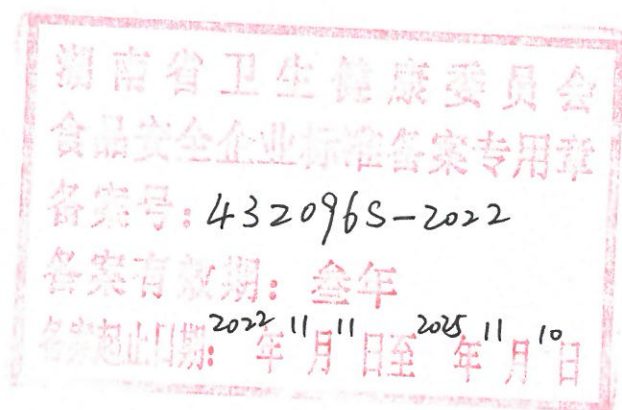 湖南省卫生健康委员会
食品安全企业标准备案专用章
备案号：432096S-2022
备案有效期：叁年
备案起止日期：2022年11月11日至2025年11月10日